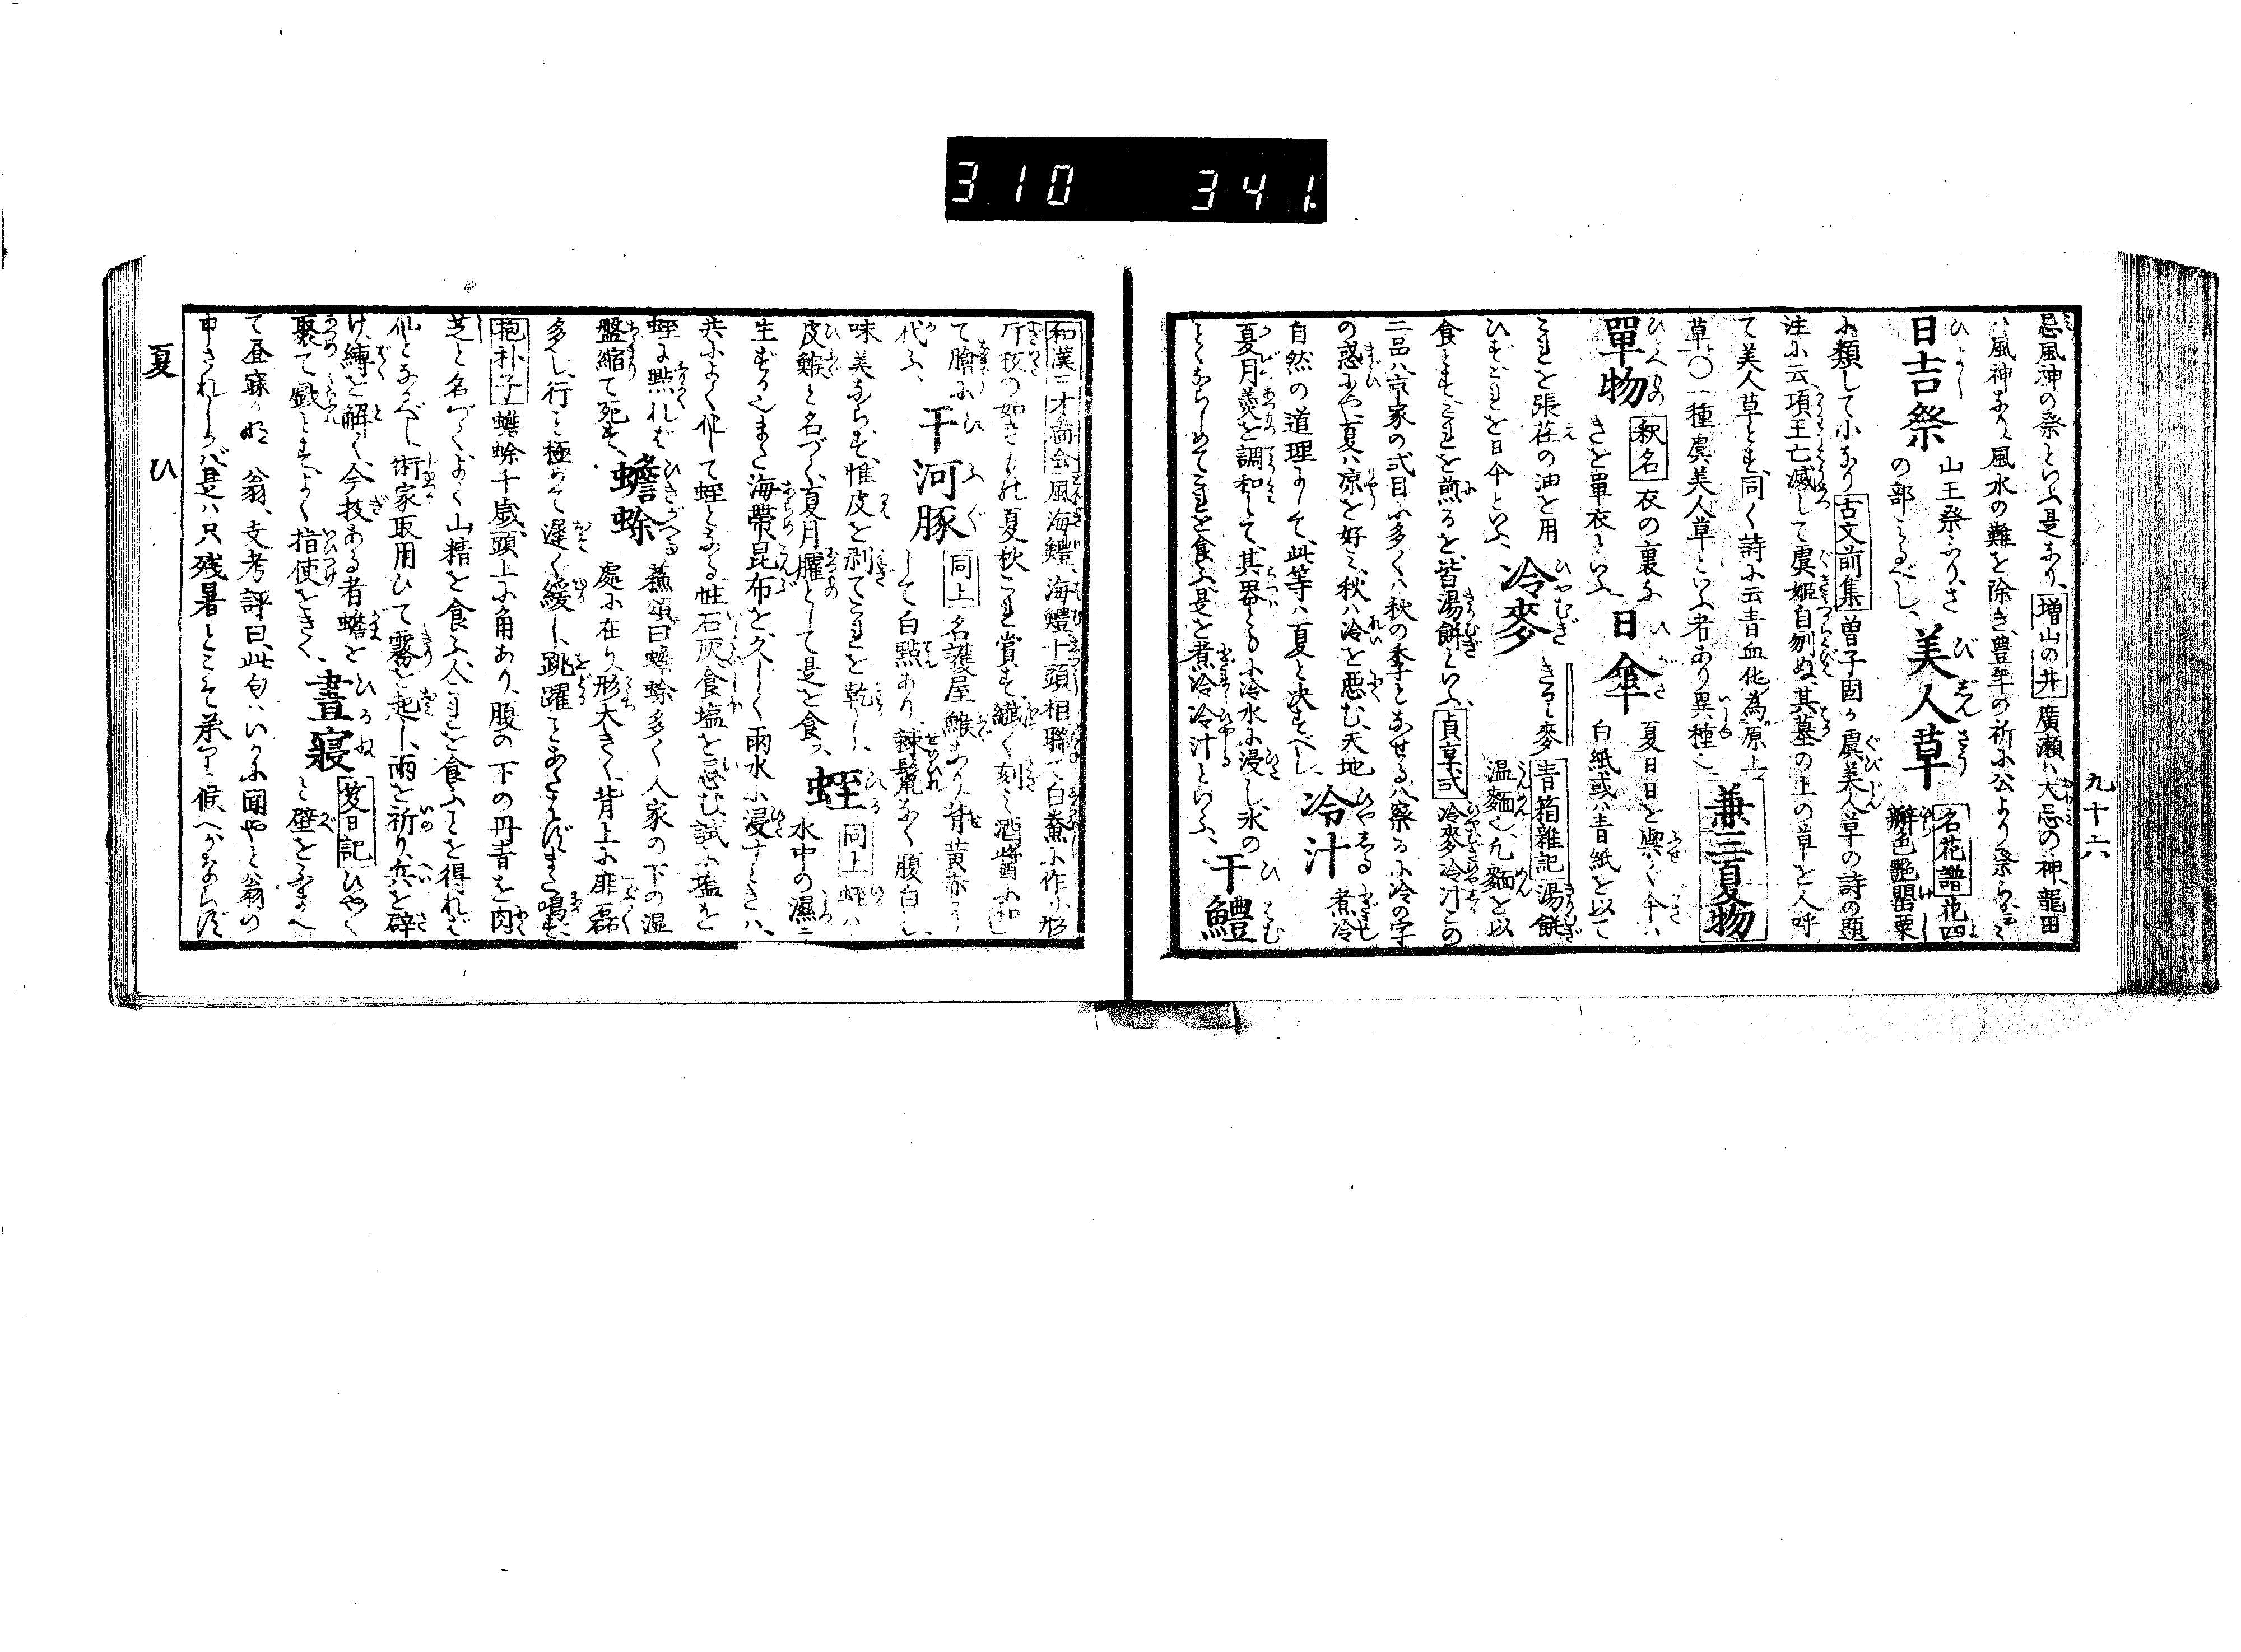 310 341.
九十六
忌風神の祭といふ是なり、増山の井廣瀬ハ大忌の神、龍田
ハ風神なり、風水の難を除き、豊年の祈に公より祭らる
日吉祭 山王祭なり、さの部にみるべし、 美人草 名花譜花四瓣色艶罌粟
に類して小なり古文前集曽子固が虞美人草の詩の題
注に云項王亡滅して虞姫自刎ぬ、其墓の上の草を人呼
て美人草とす、同く詩に云青血化為原上
草〇一種虞美人草といふ者あり異種 兼三夏物
單物 釈名衣の裏なきを單衣といふ 日傘 夏日日を禦ぐ傘ハ白紙或ハ青紙を以て
これを張荏の油を用ひずこれを日傘といふ、 冷麥 きる麥 青箱雜記湯餅温麺凡麺を以
食とすこれを煎るを、皆湯餅といふ、貞享式冷麥冷汁この
二品ハ京家の式目に多くハ秋の季となせるハ察るに冷の字
の惑にや、夏ハ凉を好ミ、秋ハ冷を悪む、天地
自然の道理にして、此等ハ夏と決すべし、 冷汁 煮冷
夏月羮を調和して、其器ともに冷水に浸し、氷の
とくならしめてこれを食ふ、是を煮冷冷汁といふ、 干鱧
和漢三才圖会風海鱧、海鱧十頭相聯て白鮝に作り、形
片板の如きもの夏秋これ賞す、繊く刻ミ酒醬に和し
て膾に代ふ、 干河豚 同上名護屋鯸なり、背黄赤うして白點あり、諫鬣なく腹白し
味美ならず、惟皮を剥てこれを乾し、
皮鯸と名づく、夏月臛として是を食ふ、 蛭 同上蛭ハ水中の濕ニ
生ずる也また海帶昆布を、久しく雨水に浸すときハ、
共によく化して蛭となる、性石灰食塩を忌む、試に塩を
蛭に點れば盤縮て死す、 蟾蜍 蘓頌曰蟾蜍多く人家の下の湿
處に在り、形大きく、背上に痱磊
多し、行こと極めて遅く緩し、跳躍ことあたはずまた鳴ず、
抱朴子蟾蜍千歳、頭上に角あり、腹の下の丹青を肉
芝と名づく、よく山精を食ふ、人これを食ふことを得れば
仙となるべし、術家取用ひて霧を起し、雨を祈り、兵を辟
け、縛を解く、今技ある者蟾を
聚て戯とす、よく指使をきく、 晝寢 笈日記ひやひやと壁をふまへ
て昼寐かな 翁、支考評曰、此句ハいかに聞やと翁の
申されしかバ是ハ只残暑とこそ承り候へかならず
夏 ひ